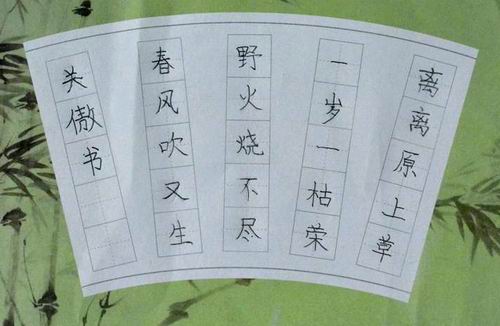 离离原上草
一岁一枯荣
野火烧不尽
春风吹又生
关傲书